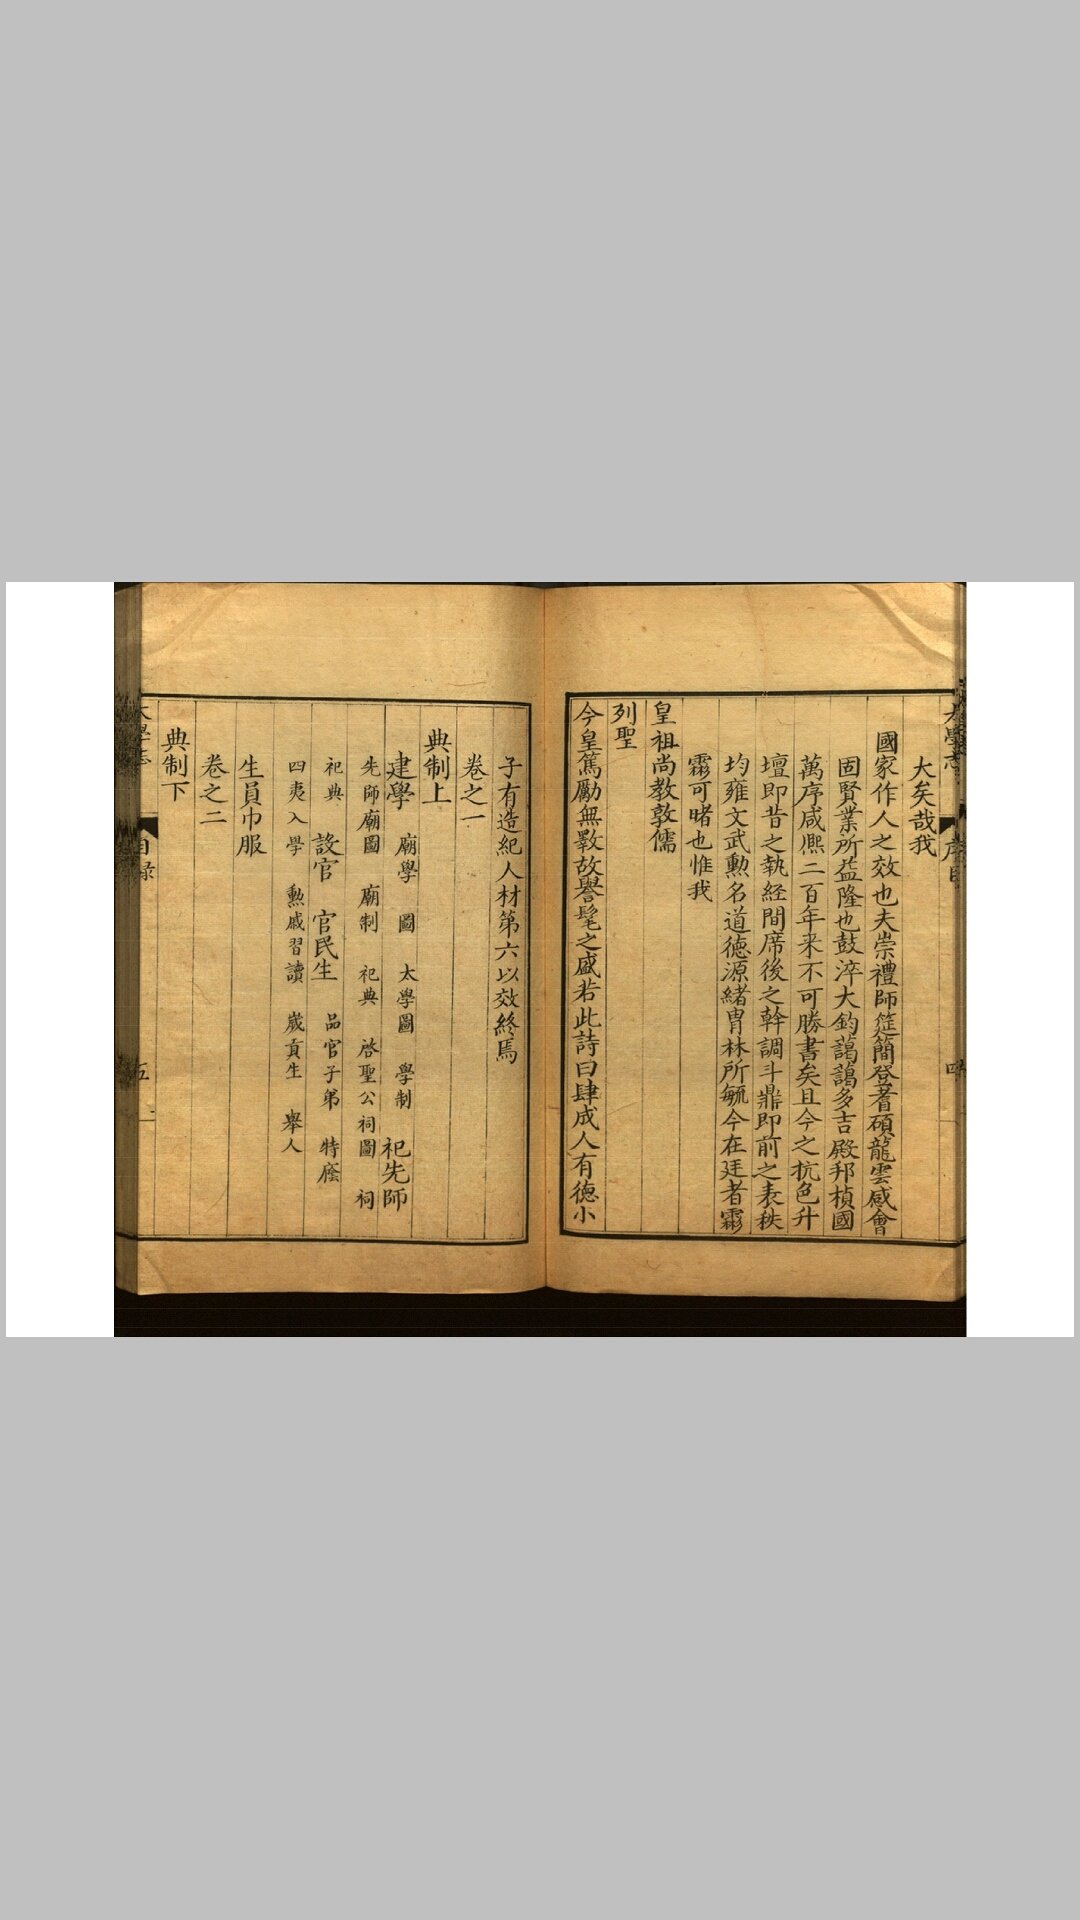 大矣哉我
國家作人之效也夫崇禮師筵簡登耆碩龍雲感會
固賢業所益隆也鼓淬大鈞藹藹多吉殿邦楨國
萬序咸熈二百年来不可勝書矣且今之抗色升
壇即昔之執經間席後之幹調斗鼎即前之表秩
均雍文武勲名道德源緒胄林所毓今在廷者霧
霧可睹也惟我
皇祖尚教敦儒
列聖
今皇篤勵無斁故譽髦之盛若此詩曰肆成人有德小
子有造紀人材第六以效終焉
卷之一
典制上
建學 廟學圖 太學圖 學制 祀先師
先師廟圖 廟制 祀典 啓聖公祠圖 祠
祀典 設官 官民生 品官子弟 特廕
四夷入學 勲戚習讀 歲貢生 舉人
生員巾服
卷之二
典制下
太學志
目録
五